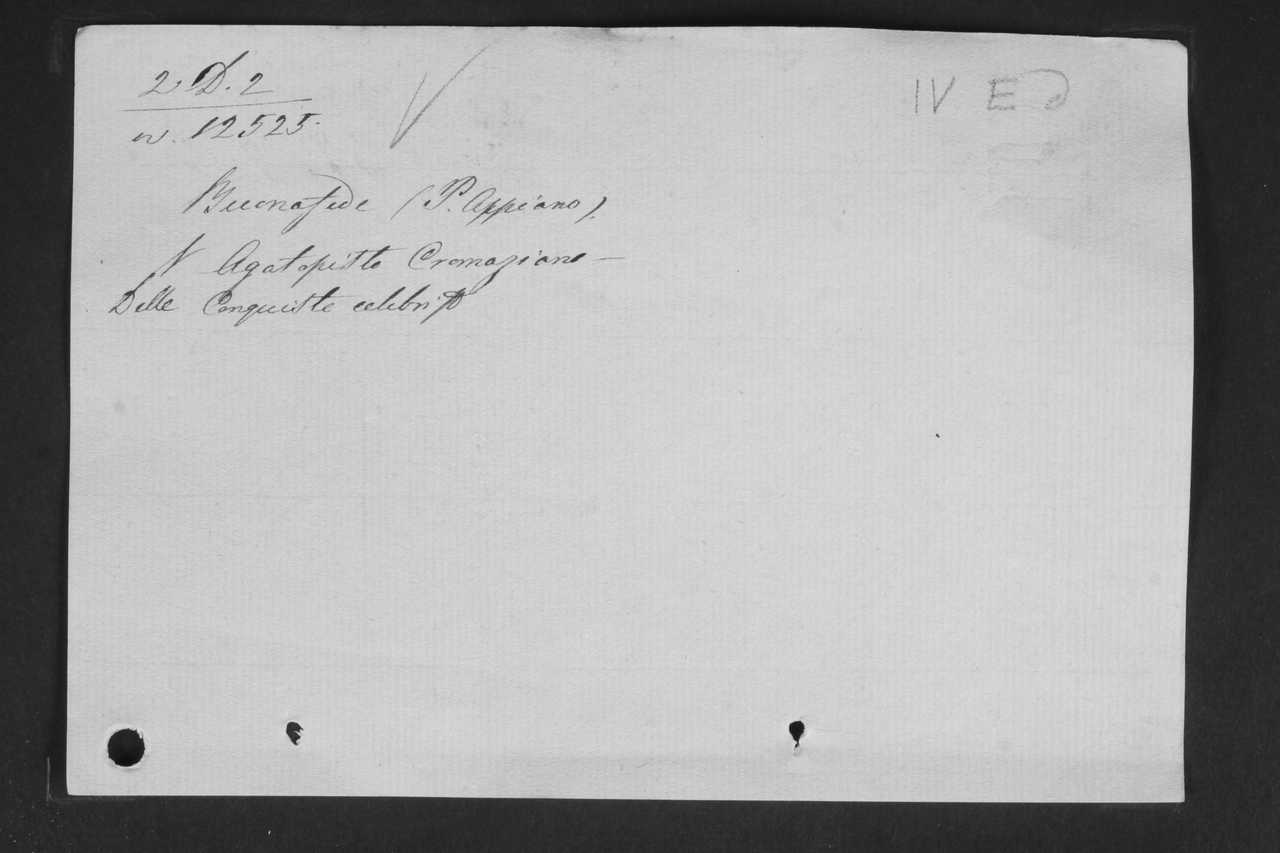 2 D. 2
n. 12525.
IV E
Buonafede (P. Appiano).
V Agatopisto Cromaziano —
Delle Conquiste celebri